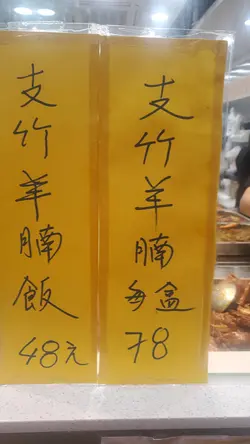 支竹羊腩飯 48元
支竹羊腩每盒 78